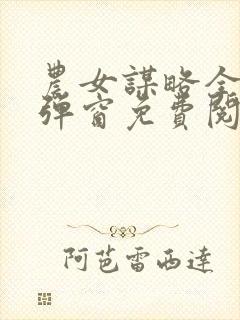 農女謀略全
彈窗免費閱
阿芭雷西達